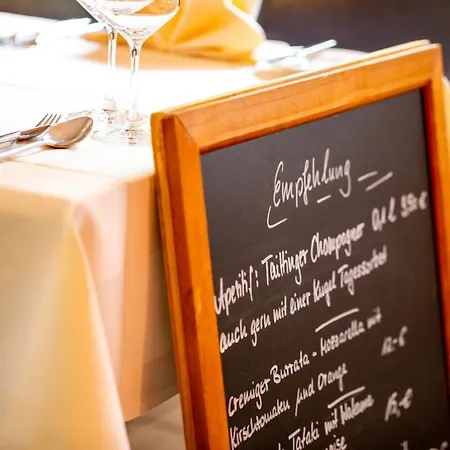 Empfehlung
Aperitif: Taittinger Champagner 0,1 l
auch gern mit einer Kugel Tagessorbet
Cremiger Burrata - Mozzarella mit
Kirschtomaten und Orange 12.-€
Tataki mit Wakame
15.-€